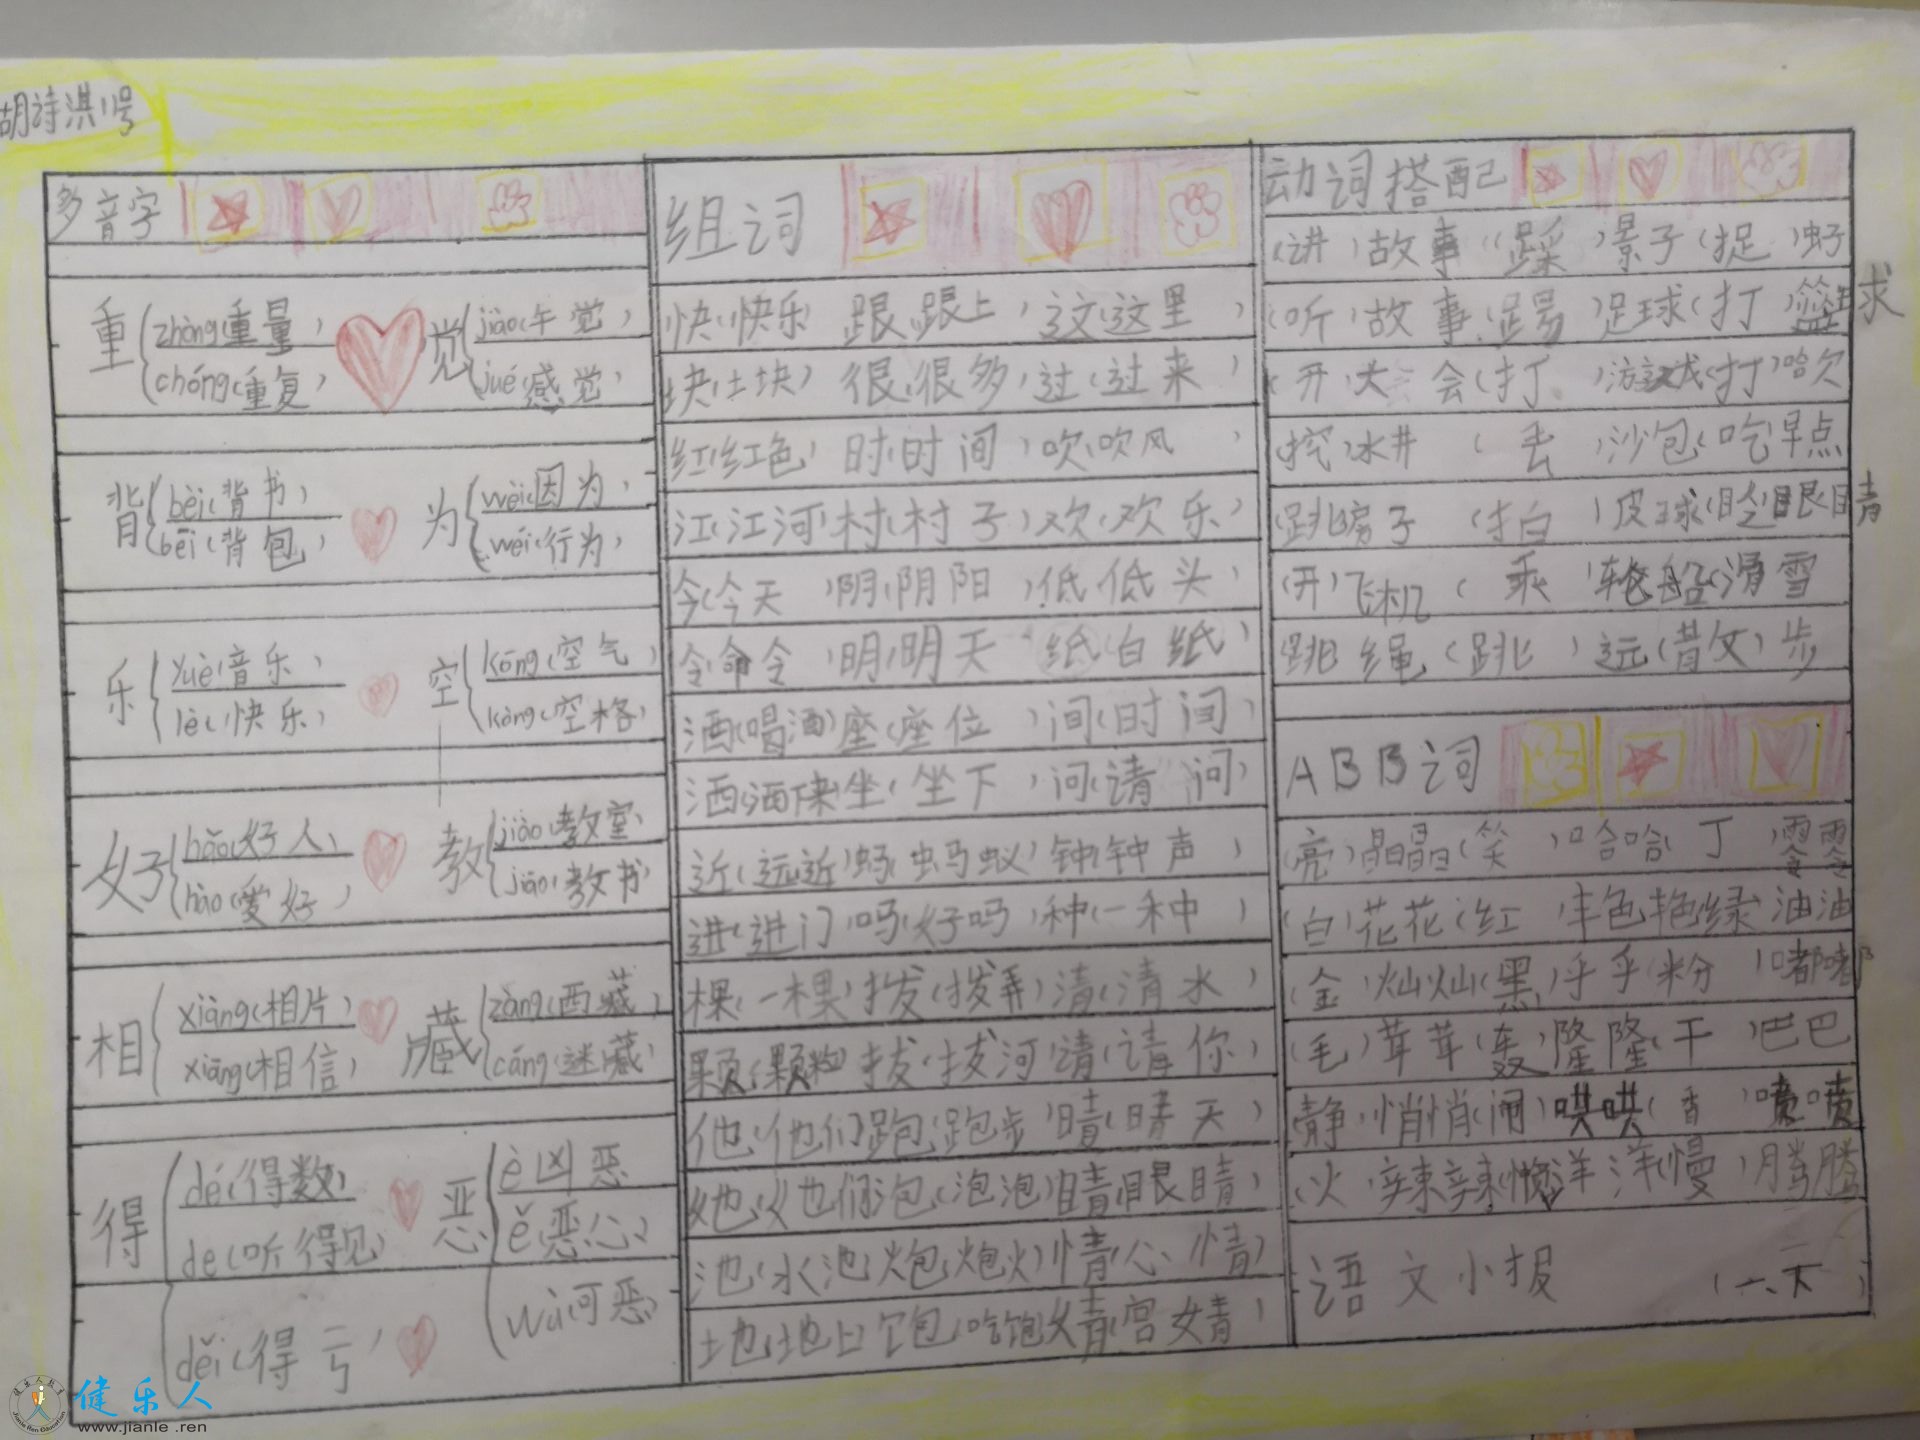 胡诗淇1号
多音字
重 zhòng(重量) chóng(重复)
觉 jiào(午觉) jué(感觉)
背 bèi(背书) bēi(背包)
为 wèi(因为) wéi(行为)
乐 yuè(音乐) lè(快乐)
空 kōng(空气) kòng(空格)
好 hǎo(好人) hào(爱好)
教 jiào(教室) jiāo(教书)
相 xiàng(相片) xiāng(相信)
藏 zàng(西藏) cáng(迷藏)
得 dé(得数) de(听得见) děi(得亏)
恶 è凶恶 ě(恶心) wù可恶
组词
快(快乐 跟(跟上)这(这里)
块(土块) 很(很多)过(过来)
红(红色) 时(时间)吹(吹风)
江(江河)村(村子)欢(欢乐)
今(今天)阴(阴阳)低(低头)
令(命令 明(明天 纸(白纸)
酒(喝酒)座(座位)间(时间)
洒(洒下来)坐(坐下)问(请问)
近(远近)蚂(蚂蚁)钟(钟声)
进(进门)吗(好吗)种(一种)
棵(一棵)拨(拨弄)清(清水)
颗(颗粒)拔(拔河)请(请你)
他(他们)跑(跑步)晴(晴天)
她(她们)泡(泡泡)睛(眼睛)
池(水池)炮(炮火)情(心情)
地(地上)饱(吃饱)婧(宫婧)
动词搭配
(讲)故事(踩)景子(捉)虾
(听)故事(踢)足球(打)篮球
(开)大会(打)游戏(打)哈欠
(挖)冰井(丢)沙包(吃)早点
(跳)房子(拍)皮球(眨)眼睛
(开)飞机(乘)轮船(滑)雪
(跳)绳(跳)远(散)步
ABB词
(亮)晶晶(笑)哈哈(丁)零零
(白)花花(红)艳艳(绿)油油
(金)灿灿(黑)乎乎(粉)嘟嘟
(毛)茸茸(轰)隆隆(干)巴巴
(静)悄悄(闹)哄哄(香)喷喷
(火)辣辣(懒)洋洋(慢)腾腾
语文小报
健乐人
www.jianle.ren